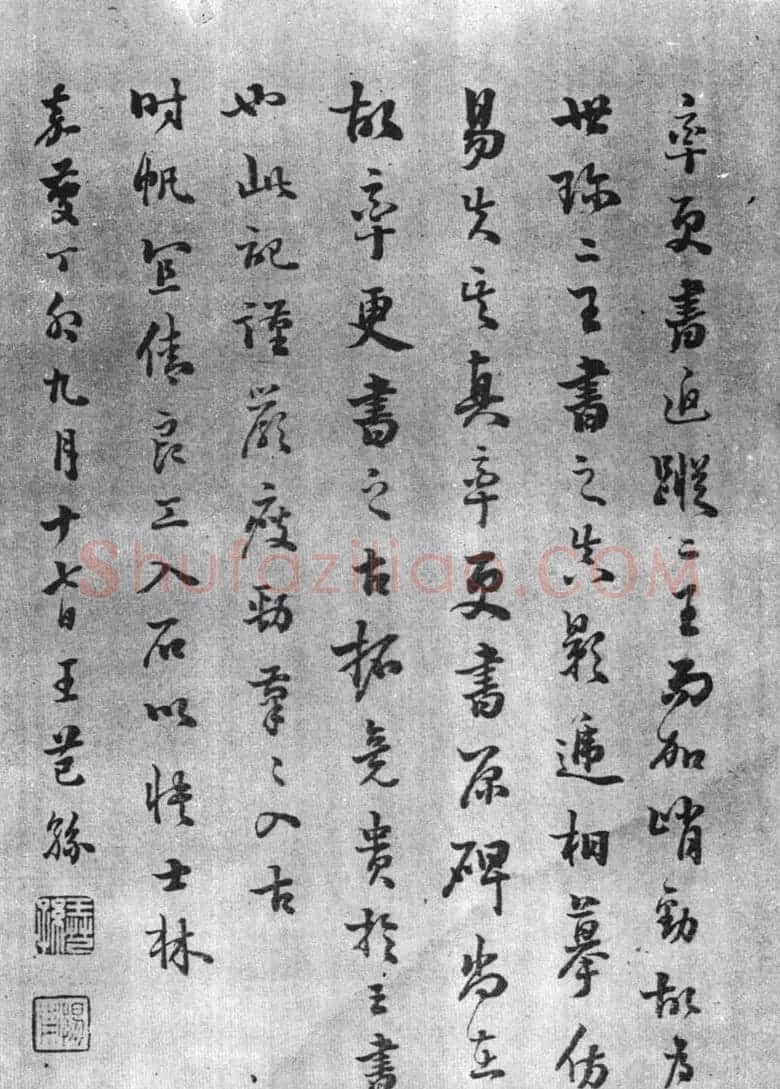 率更書追蹤二王而加峭勁故為
世珍二王書之影遞相摹仿
易失其真率更書原碑尚在
故率更書之古拓竟貴於王書
也此記謹嚴瘦勁筆々入古
时帆宜倩良工入石以士林
嘉慶丁卯九月十七日王芑孫
王芑孫
惕甫
Shufaziliao.COM